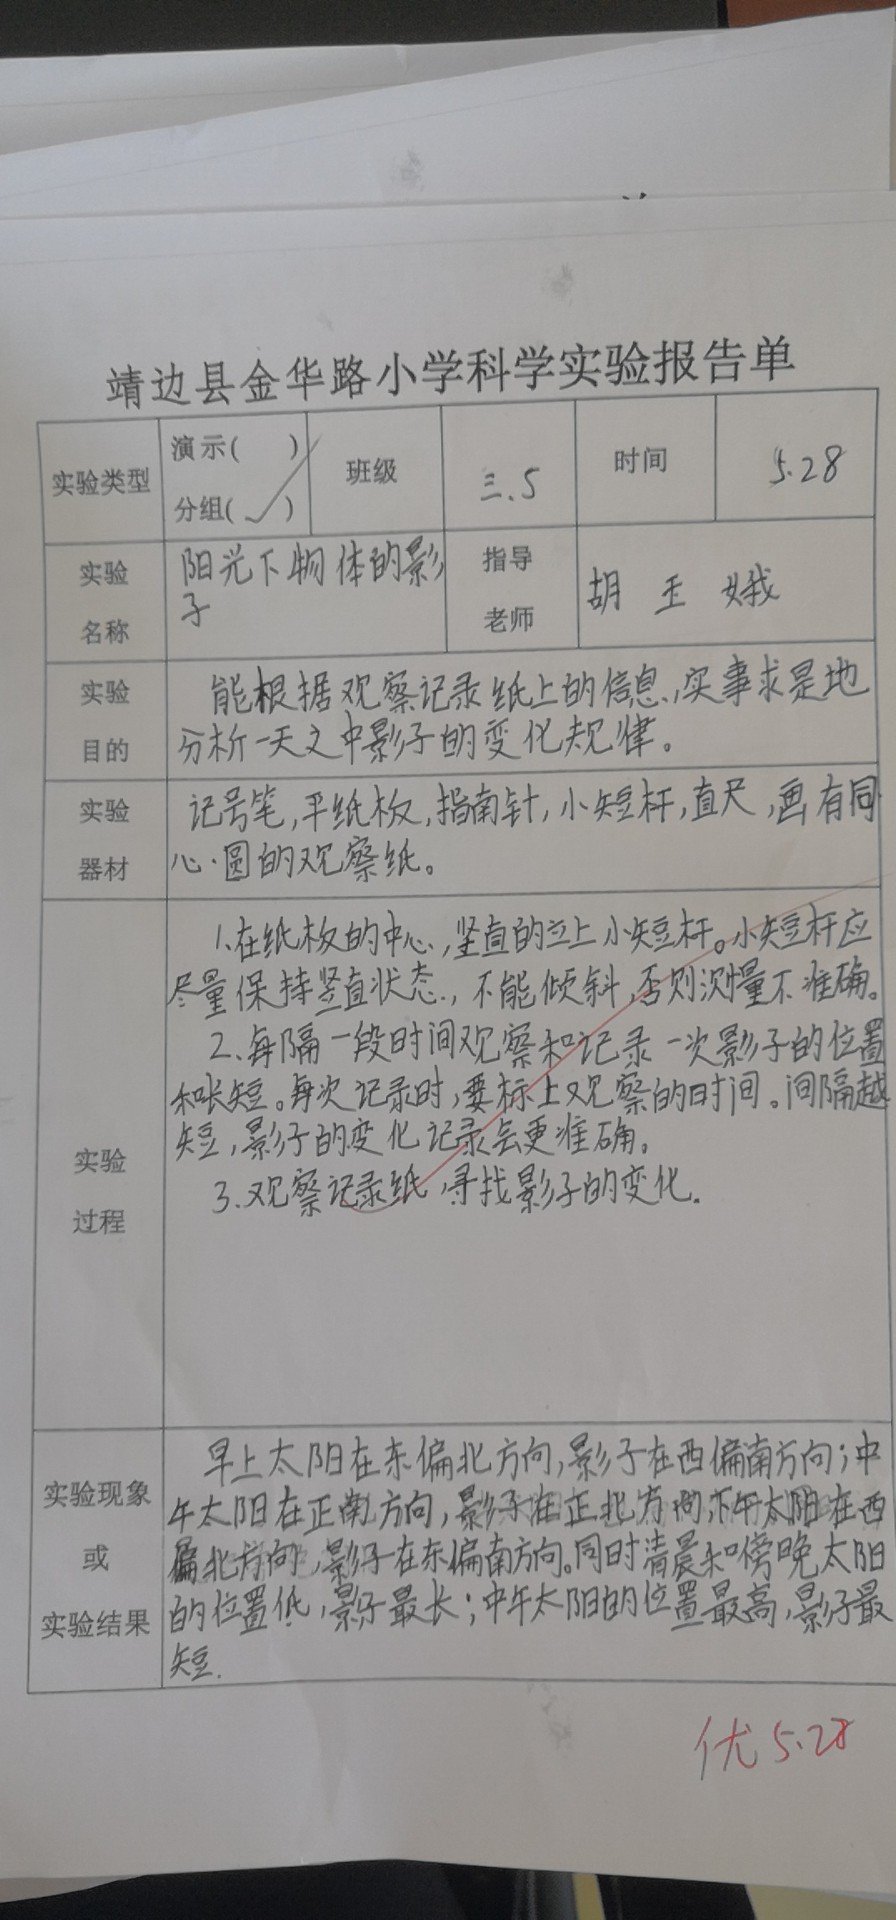 靖边县金华路小学科学实验报告单
实验类型 演示( ) 分组(✓) 班级 三.5 时间 5.28
实验名称 阳光下物体的影子 指导老师 胡玉娥
实验目的
能根据观察记录纸上的信息,实事求是地
分析一天之中影子的变化规律。
实验器材
记号笔,平纸板,指南针,小短杆,直尺,画有同
心圆的观察纸。
实验过程
1.在纸板的中心,竖直的立上小短杆。小短杆应
尽量保持竖直状态,不能倾斜,否则测量不准确。
2.每隔一段时间观察和记录一次影子的位置
和长短。每次记录时,要标上观察的时间。间隔越
短,影子的变化记录会更准确。
3.观察记录纸,寻找影子的变化.
实验现象或实验结果
早上太阳在东偏北方向,影子在西偏南方向;中
午太阳在正南方向,影子在正北方向,下午太阳在西
偏北方向,影子在东偏南方向。同时清晨和傍晚太阳
的位置低,影子最长;中午太阳的位置最高,影子最
短.
优 5.28